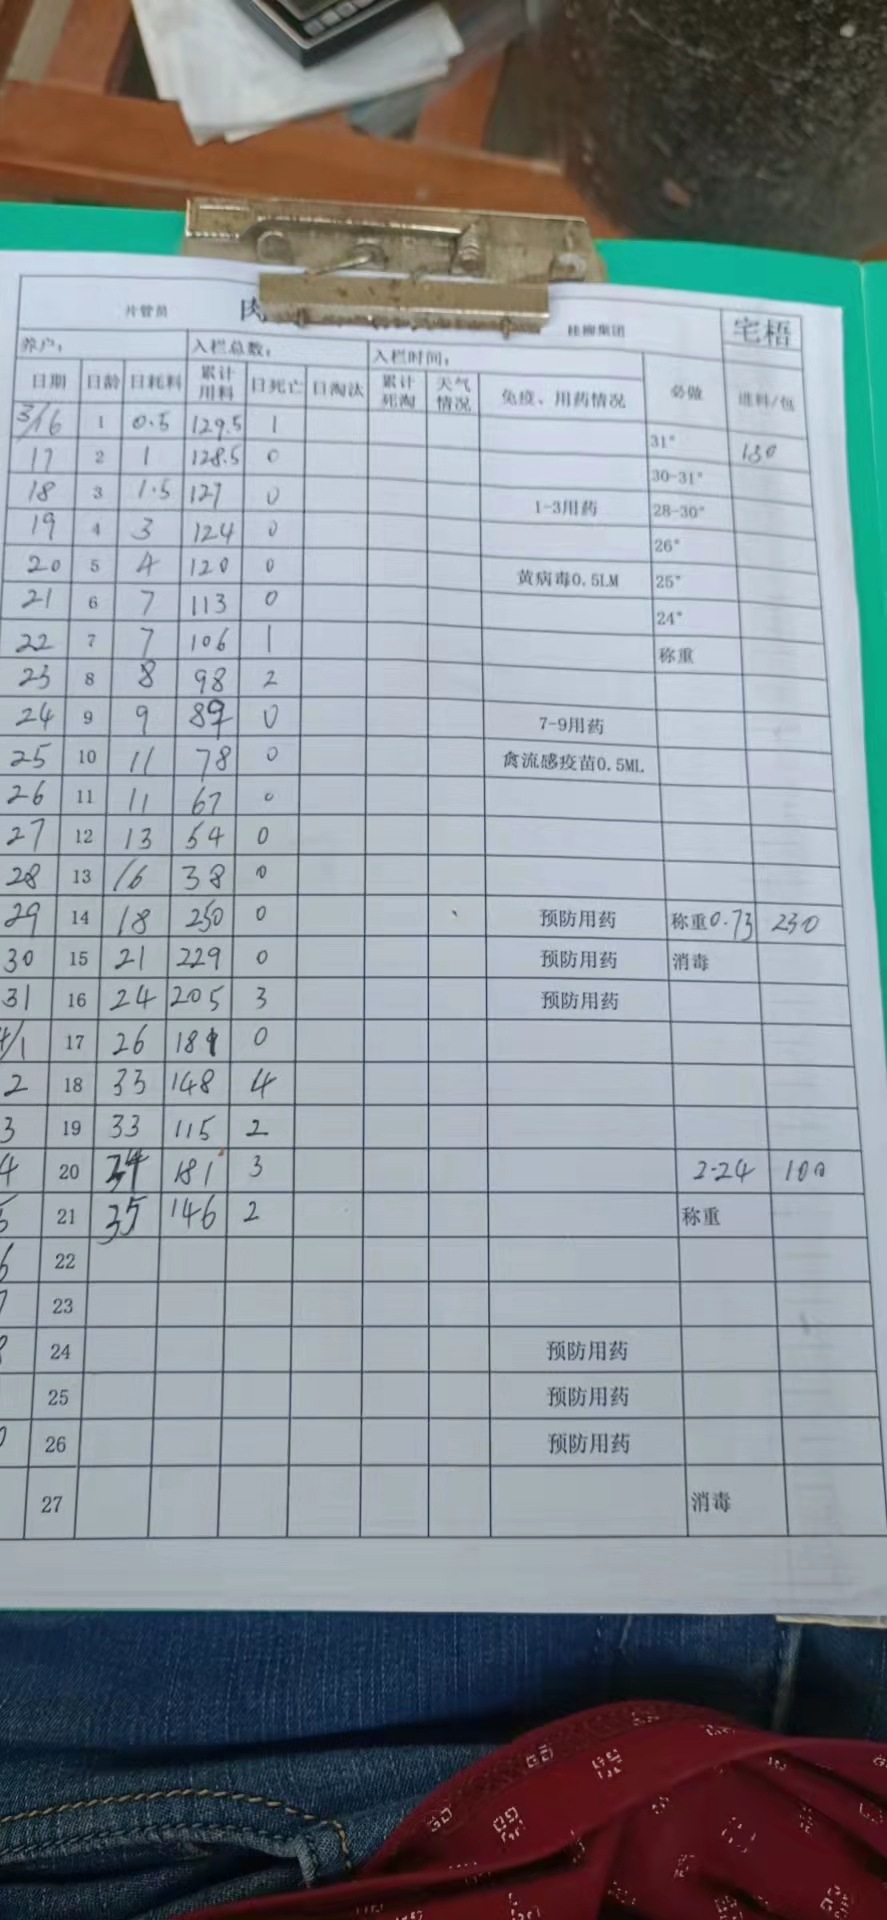 片管员 肉 桂柳集团 宅梧
养户: 入栏总数: 入栏时间:
日期 日龄 日耗料 累计用料 日死亡 日淘汰 累计死淘 天气情况 免疫、用药情况 必做 进料/包
3/16 1 0.5 129.5 1 31° 130
17 2 1 128.5 0 30-31°
18 3 1.5 127 0 1-3用药 28-30°
19 4 3 124 0 26°
20 5 4 120 0 黄病毒0.5LM 25°
21 6 7 113 0 24°
22 7 7 106 1 称重
23 8 8 98 2
24 9 9 89 0 7-9用药
25 10 11 78 0 禽流感疫苗0.5ML
26 11 11 67 0
27 12 13 54 0
28 13 16 38 0
29 14 18 250 0 预防用药 称重0.73 230
30 15 21 229 0 预防用药 消毒
31 16 24 205 3 预防用药
4/1 17 26 181 0
2 18 33 148 4
3 19 33 115 2
4 20 34 181 3 2.24 100
5 21 35 146 2 称重
6 22
7 23
8 24 预防用药
25 预防用药
26 预防用药
27 消毒